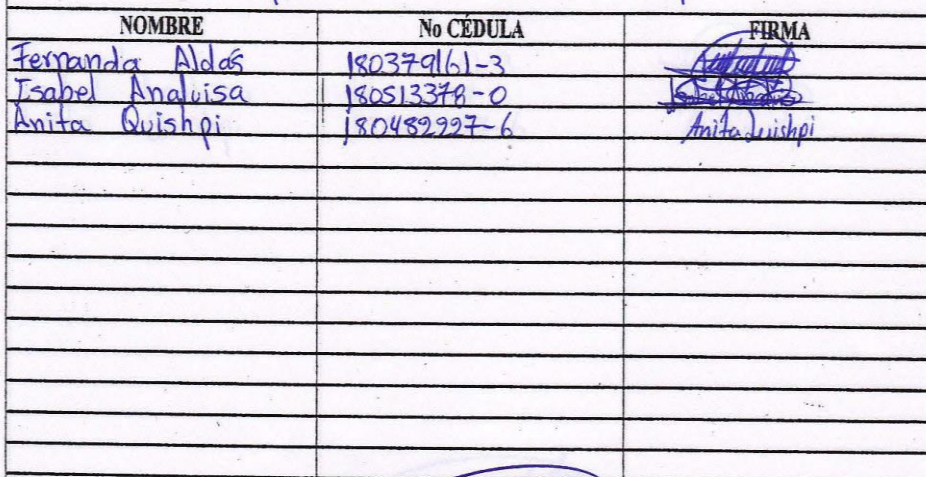 NOMBRE No CÉDULA FIRMA
Fernanda Aldás 180379161-3
Isabel Analuisa 180513378-0
Anita Quishpi 180482997-6 Anita Quishpi